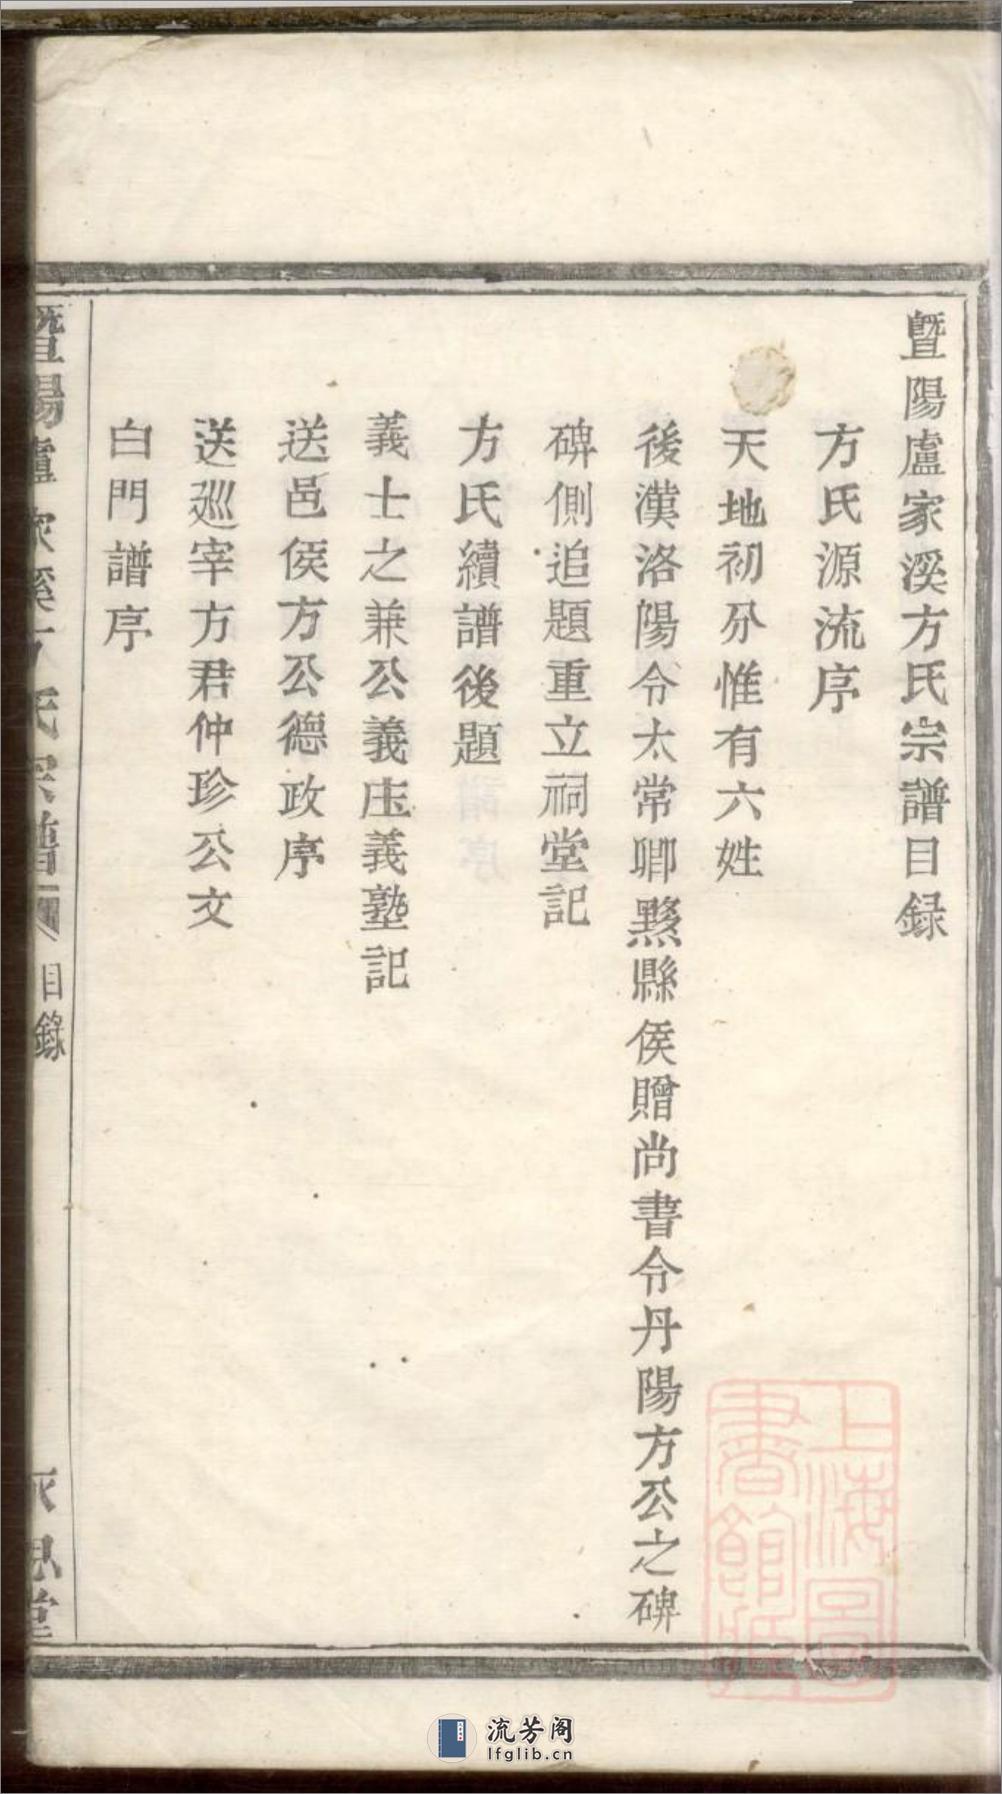 暨陽盧家溪方氏宗譜目録
方氏源流序
天地初分惟有六姓
後漢洛陽令太常卿黟縣侯贈尚書令丹陽方公之碑
碑側追題重立祠堂記
方氏續譜後題
義士之兼公義庄義塾記
送邑侯方公德政序
送巡宰方君仲珍公文
白門譜序
暨陽盧家溪方氏宗譜 目錄
思堂
上海圖
書館藏
流芳阁
lfglib.cn